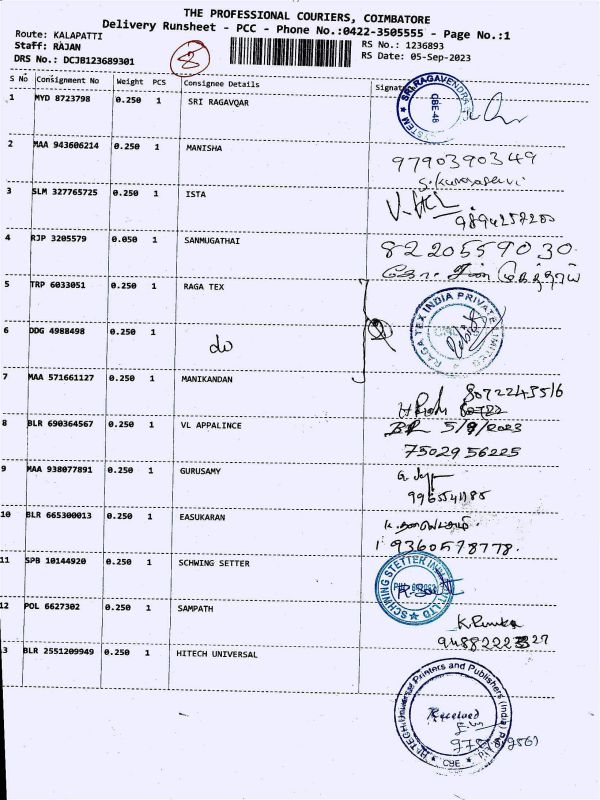 THE PROFESSIONAL COURIERS, COIMBATORE
Delivery Runsheet - PCC - Phone No.:0422-3505555 - Page No.:1
Route: KALAPATTI
Staff: RAJAN
DRS No.: DCJB123689301
8
RS No.: 1236893
RS Date: 05-Sep-2023
S No Consignment No Weight PCS Consignee Details Signat
1 MYD 8723798 0.250 1 SRI RAGAVQAR
SRI RAGAVENDRA SYSTEM CBE-48
2 MAA 943606214 0.250 1 MANISHA
9790390349
3 SLM 327765725 0.250 1 ISTA
9894257200
4 RJP 3205579 0.050 1 SANMUGATHAI
8220559030
5 TRP 6033051 0.250 1 RAGA TEX
RAGA TEX INDIA PRIVATE LIMITED
6 DDG 4988498 0.250 1 do
7 MAA 571661127 0.250 1 MANIKANDAN
8072243516
8 BLR 690364567 0.250 1 VL APPALINCE
5/9/2023
7502956225
9 MAA 938077891 0.250 1 GURUSAMY
9965541185
10 BLR 665300013 0.250 1 EASUKARAN
9360578778.
11 SPB 10144920 0.250 1 SCHWING SETTER
SCHWING STETTER INDIA PVT LTD
12 POL 6627302 0.250 1 SAMPATH
3 BLR 2551209949 0.250 1 HITECH UNIVERSAL
HI-TECH Universal Printers and Publishers (India) P
CBE
Received